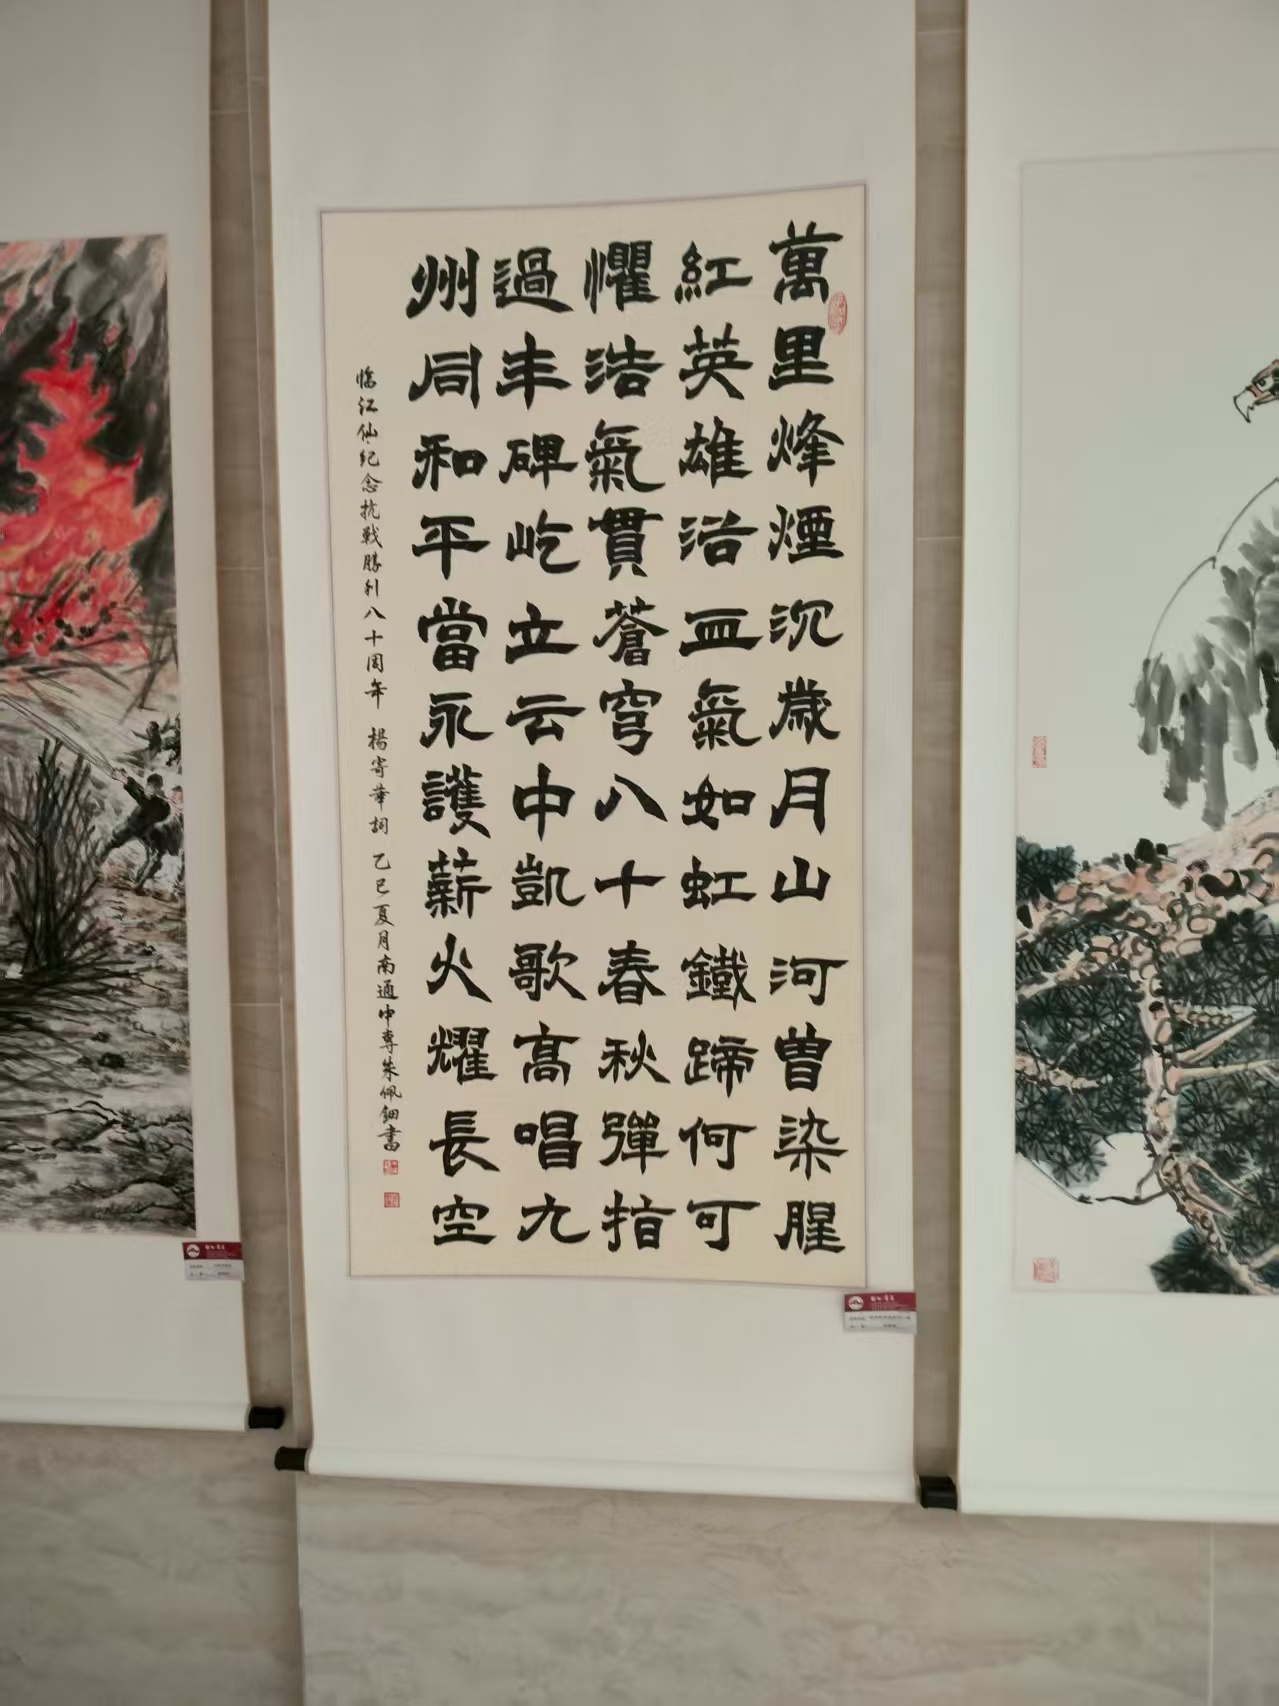 萬里烽煙沉歲月山河曽染腥
紅英雄浴血氣如虹鐵蹄何可
懼浩氣貫蒼穹八十春秋彈指
過丰碑屹立云中凱歌高唱九
州同和平當永護薪火耀長空
临江仙·纪念抗戰勝利八十周年 楊寄華詞 乙巳夏月南通中專朱佩鈿書